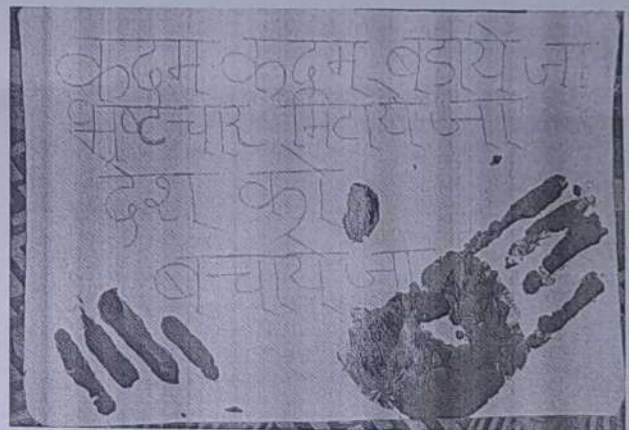 कदम कदम बडाये जा
भ्रष्टचार मिटाये जा
देश को
बचाये जा